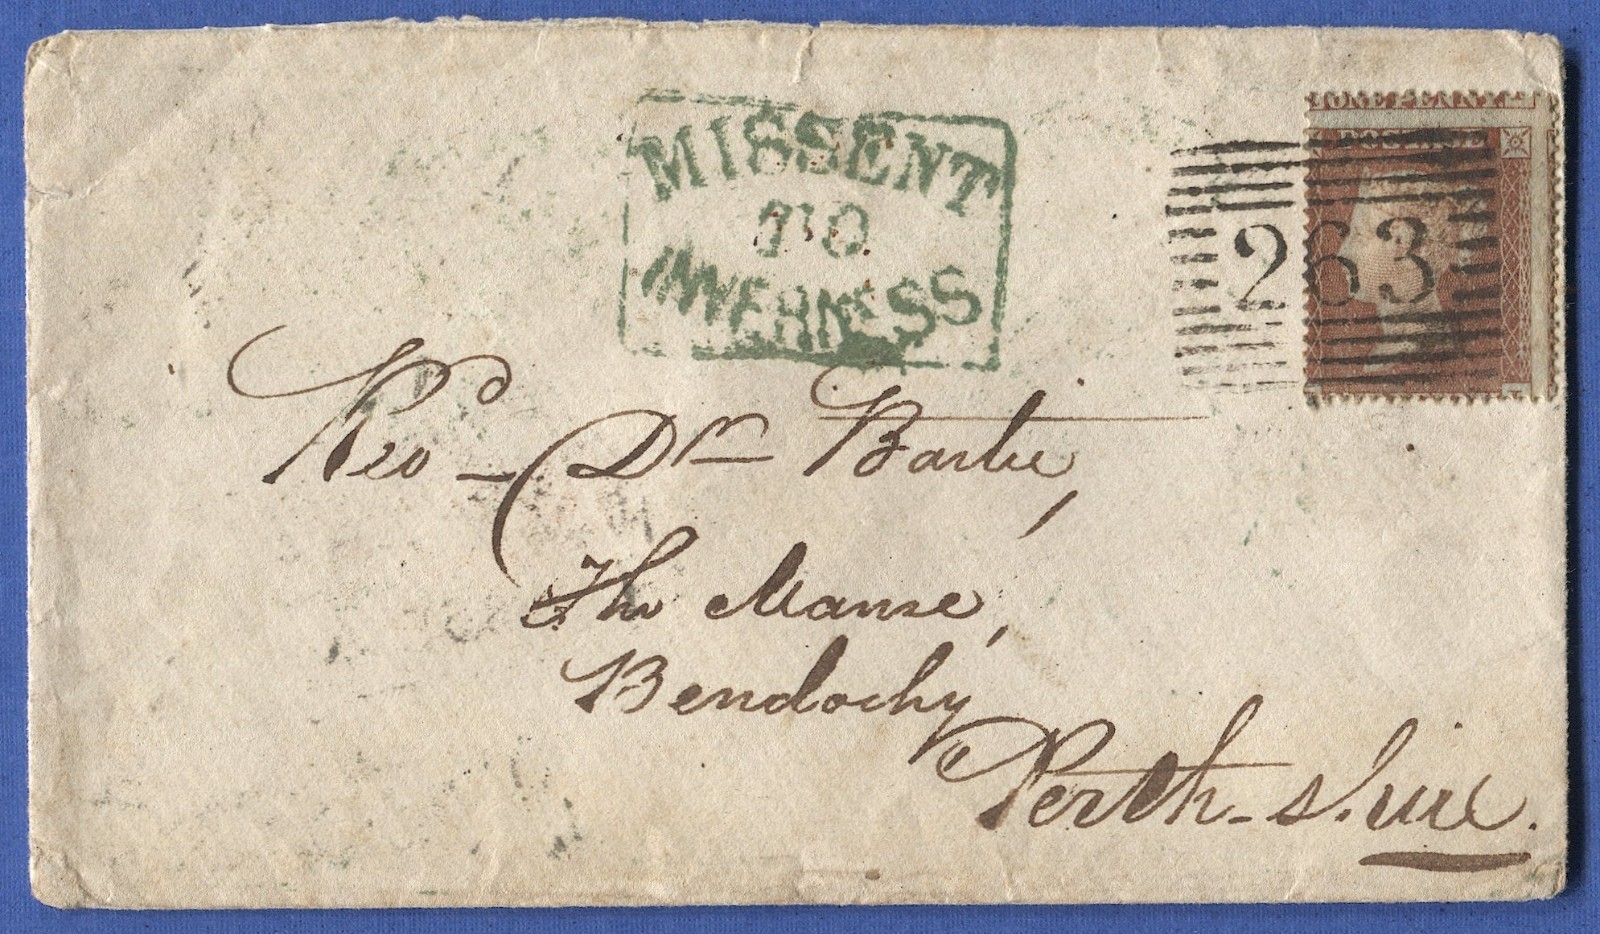 MISSENT
TO
INVERNESS
ONE PENNY
POSTAGE
263
Rev Dr Barty,
The Manse,
Bendochy
Perth-shire.